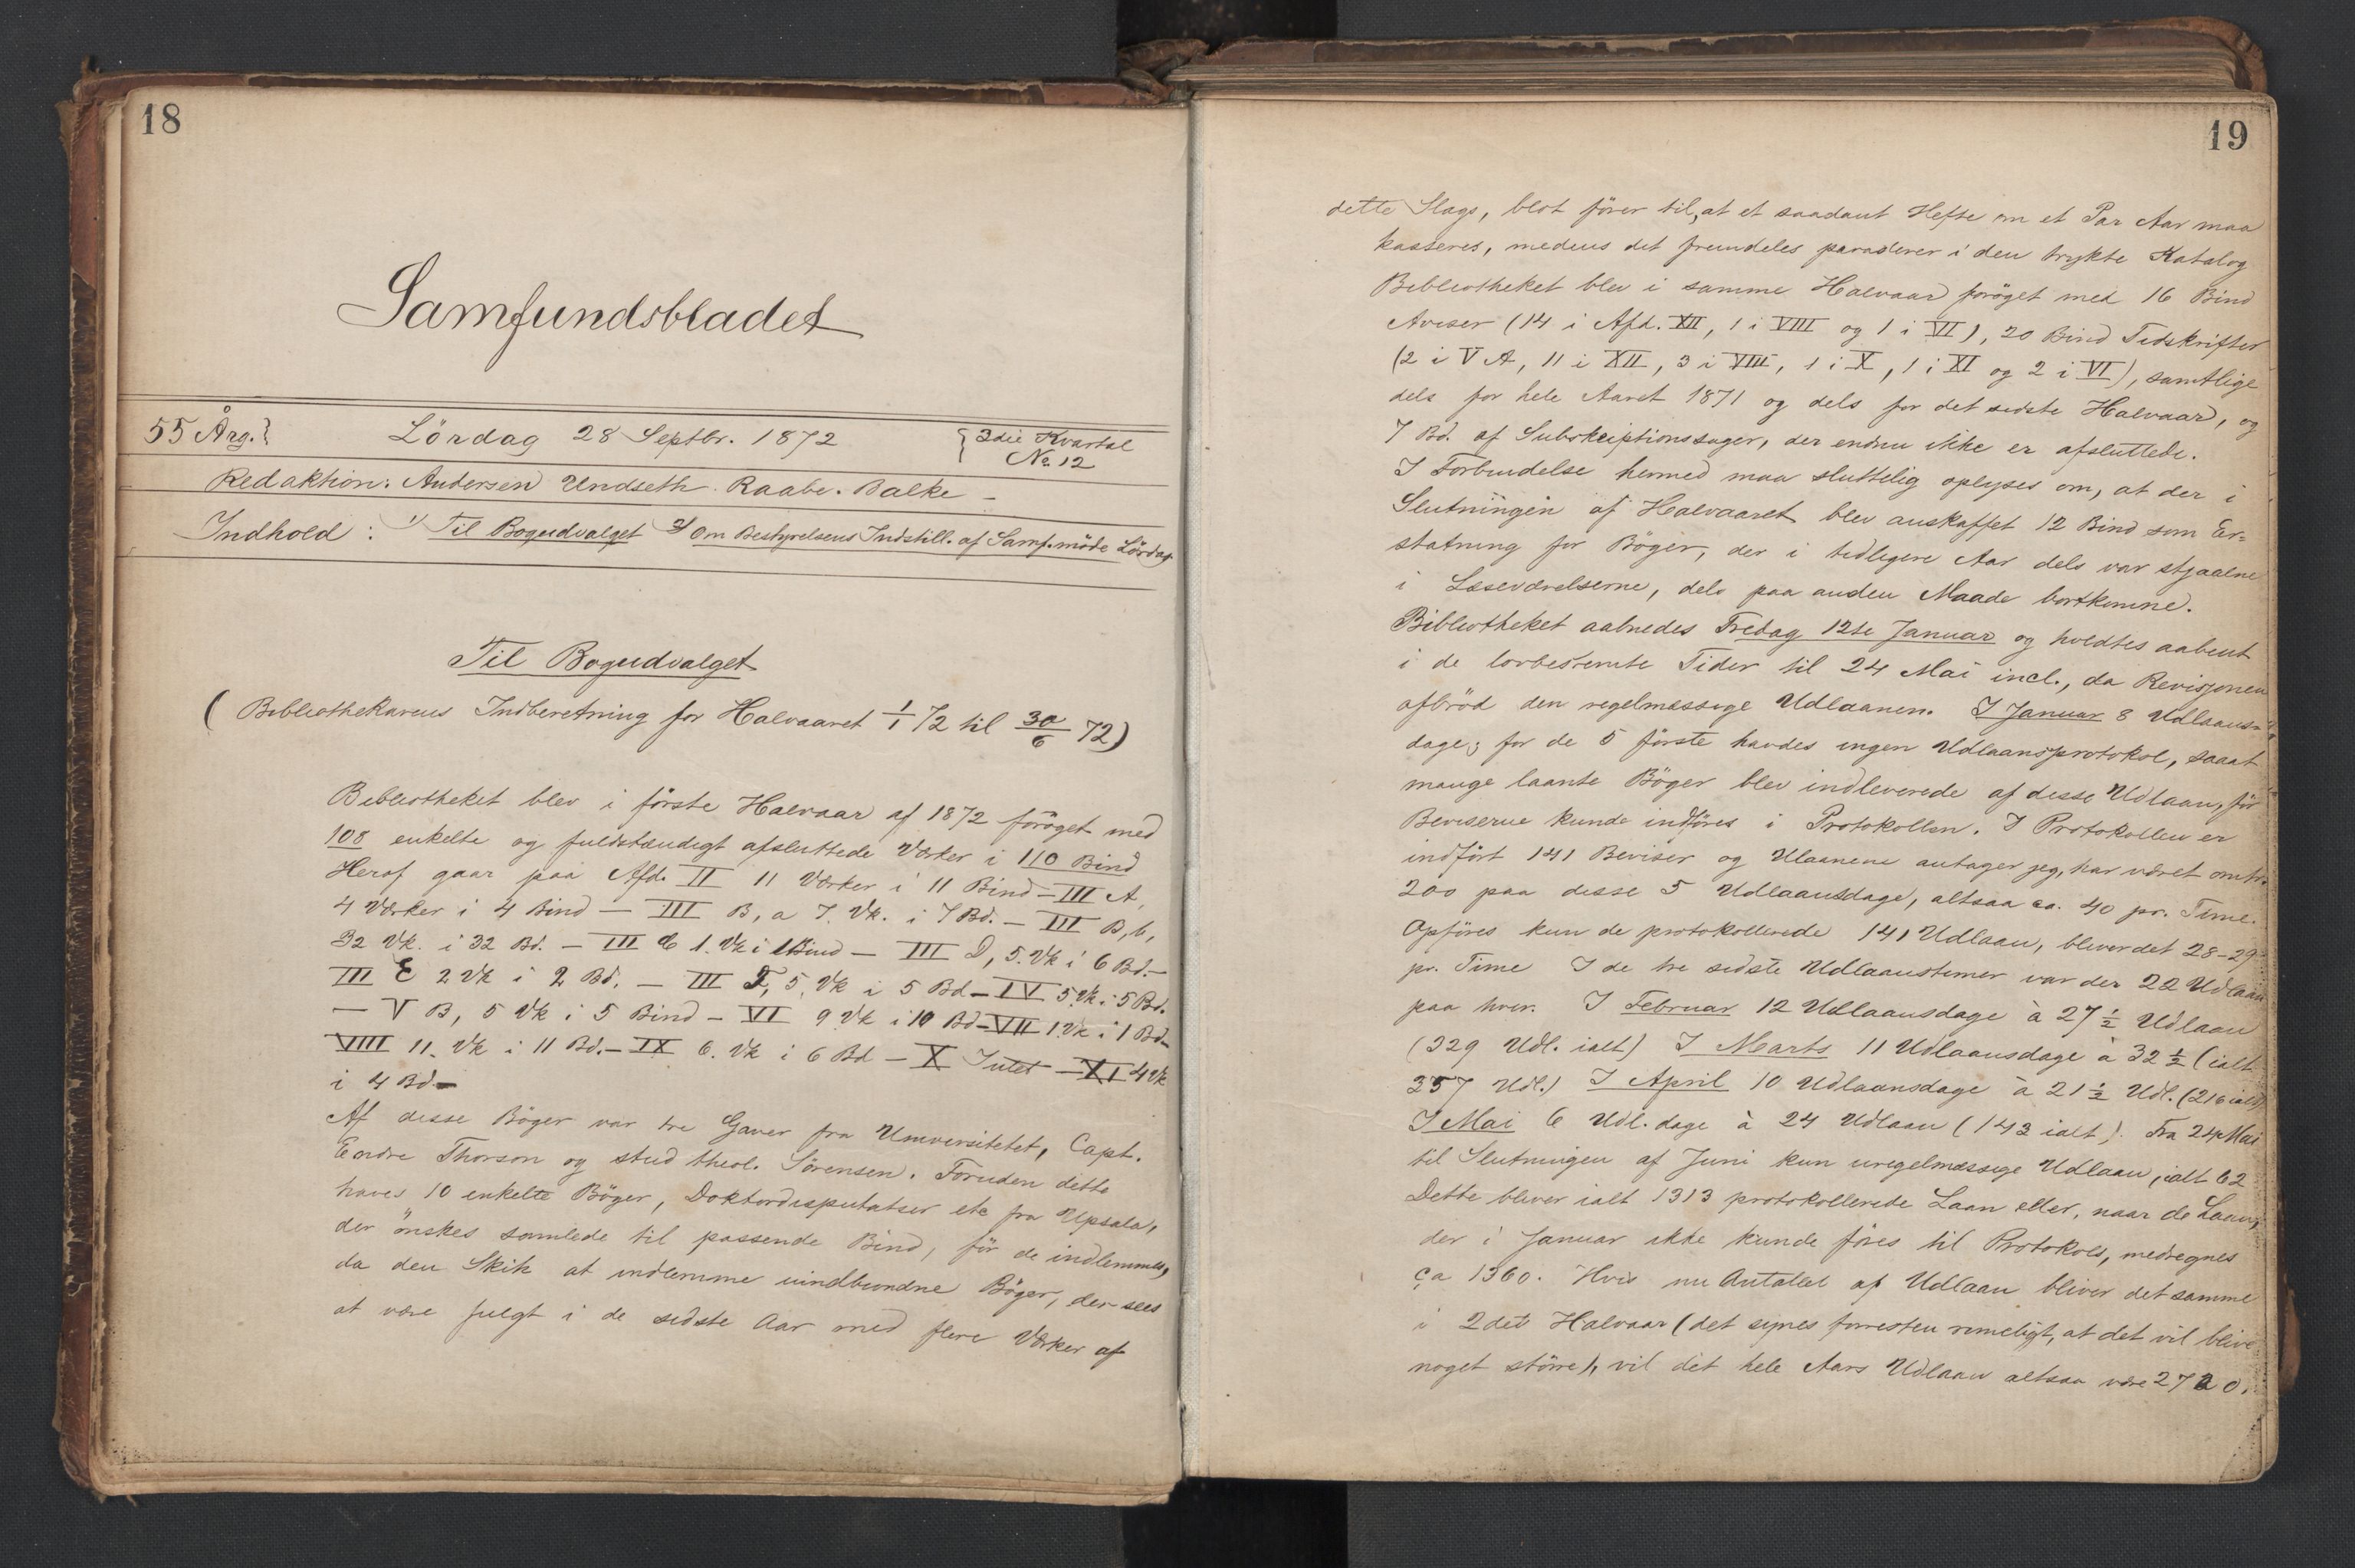 18
Samfundsbladet
55 Årg.} Lördag 28 Septbr. 1872 {3die Kvartal
No. 12
Redaktion. Andersen Undseth. Raabe. Balke –
Indhold: 1) Til Bogudvalget 2) Om Bestyrelsens Indstill. af Samf.möde Lördag
Til Bogudvalget
(Bibliothekarens Indberetning for Halvaaret 1/1 72 til 30/6 72)
Bibliotheket blev i förste Halvaar af 1872 foröget med
108 enkelte og fuldstændigt afsluttede Værker i 110 Bind
Heraf gaar paa Afd. II 11 Værker i 11 Bind – III A,
4 Værker i 4 Bind – III B, a 7. Vk. i 7 Bd. – III B, b,
32 Vk. i 32 Bd. – III C 1. Vk i 1 Bind – III D, 5. Vk i 6 Bd. –
III E 2 Vk i 2 Bd. – III F, 5. Vk i 5 Bd – IV 5. Vk. i 5 Bd.
– V B, 5 Vk i 5 Bind – VI 9 Vk i 10 Bd – VII 1. Vk. i 1 Bd –
VIII 11. Vk i 11 Bd. – IX 6. Vk i 6 Bd – X Intet – XI 4 Vk
i 4 Bd –
Af disse Böger var tre Gaver fra Universitetet, Capt.
Endre Thorson og stud theol. Sörensen. Foruden dette
haves 10 enkelte Böger, Doktordisputatser etc fra Upsala,
der önskes samlede til passende Bind, för de indlemmes,
da den Skik at indlemme uindbundne Böger, der sees
at være fulgt i de sidste Aar med flere Værker af
19
dette Slags, blot förer til, at et saadant Hefte om et Par Aar maa
kasseres, medens det fremdeles paraderer i den trykte Katalog
Bibliotheket blev i samme Halvaar foröget med 16 Bind
Aviser (14 i Afd. XII, 1 i VIII og 1 i VI), 20 Bind Tidskrifter
(2 i V A, 11 i XII, 3 i VIII, 1 i X, 1 i XI og 2 i VI), samtlige
dels for hele Aaret 1871 og dels for det sidste Halvaar, og
7 Bd. af Subskriptionssager, der endnu ikke er afsluttede.
I Forbindelse hermed maa sluttelig oplyses om, at der i
Slutningen af Halvaaret blev anskaffet 12 Bind som Er=
statning for Böger, der i tidligere Aar dels var stjaalne
i Læseværelserne, dels paa anden Maade bortkomne.
Bibliotheket aabnedes Fredag 12te Januar og holdtes aabent
i de lovbestemte Tider til 24 Mai incl., da Revisjonen
afbröd den regelmæssige Udlaanen. I Januar 8 Udlaans=
dage; for de 5 förste havdes ingen Udlaansprotokol, saaat
mange laante Böger blev indleverede af disse Udlaan, för
Beviserne kunde indföres i Protokollen. I Protokollen er
indfört 141 Beviser og Ulaanene antager jeg, har været omtr.
200 paa disse 5 Udlaansdage, altsaa ca. 40 pr. Time.
Opföres kun de protokollerede 141 Udlaan, bliver det 28–29
pr. Time I de tre sidste Udlaanstimer var der 22 Udlaan
paa hver. I Februar 12 Udlaansdage à 27 ½ Udlaan
(329 Udl. ialt) I Marts 11 Udlaansdage à 32 ½ (ialt
357 Udl.) I April 10 Udlaansdage à 21 ½ Udl. (216 ialt)
I Mai 6 Udl. dage à 24 Udlaan (143 ialt). Fra 24 Mai
til Slutningen af Juni kun uregelmæssige Udlaan, ialt 62
Dette bliver ialt 1313 protokollerede Laan eller, naar de Laan,
der i Januar ikke kunde föres til Protokols, medregnes
ca 1360. Hvis nu Antallet af Udlaan bliver det samme
i 2det Halvaar (det synes forresten rimeligt, at det vil blive
noget större), vil det hele Aars Udlaan altsaa være 2720.